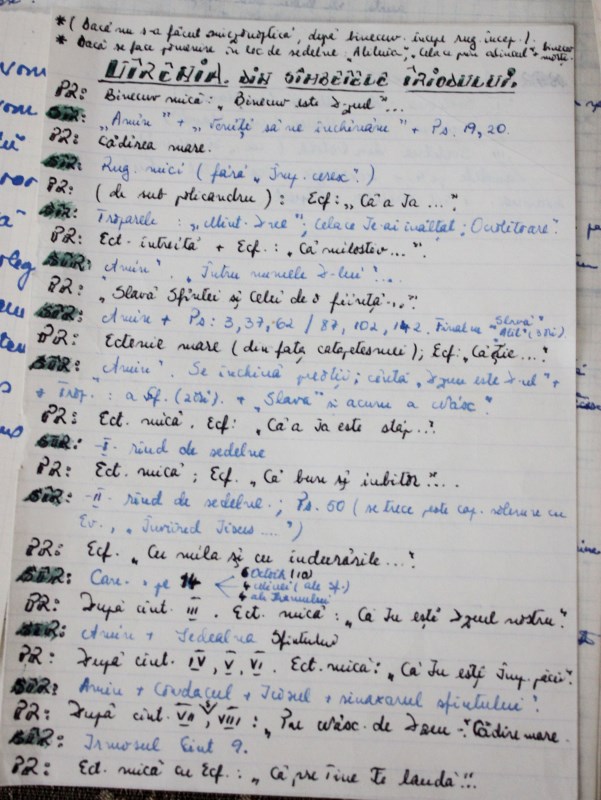 * ( Dacă nu s-a făcut miezonoptică, după binecuv. încept rug. încep. ).
* Dacă se face pomenire în loc de sedelne „Aliluia”, „Cela ce prin adîncul” + binecuv. morți.
UTRENIA DIN SÎMBETELE TRIODULUI.
PR: Binecuv mică: „Binecuv este D-zeul”...
STR: „Amin” + „Veniți să ne închinăm” + Ps. 19, 20.
PR: Cădirea mare.
STR: Rug. mici ( fără „Împ. ceresc”. )
PR: ( de sub policandru ) : Ecf: „Că a Ta ...”.
STR: Troparele : „Mînt. D-ne”; Celace Te-ai înălțat; Ocrotitoare”.
PR: Ect. întreită + Ecf.: „Că milostiv ...”.
STR: „Amin”. „Întru numele D-lui”...
PR: „Slavă Sfintei și Celei de o ființă...”.
STR: Amin + Ps: 3, 37, 62 / 87, 102, 142. Final cu „Slavă” „Alil” (3 ori).
PR: Ectenie mare ( din fața catapetesmei ); Ecf: „Că Ție ...”.
STR: „Amin”. Se închină preoții; cîntă „D-zeu este D-nul” +
+ Trop. : a Sf. (2 ori). + „Slavă” și acum a născ”.
PR: Ect. mică. Ecf: „Că a Ta este stăp...”.
STR: -I- rînd de sedelne
PR: Ect. mică ; Ecf. „Că bun și iubitor”...
STR: -II- rînd de sedelne. ; Ps. 50 ( se trece peste cop. solemne cu
Ev., „Înviind Iisus ....” )
PR: Ecf. „Cu mila și cu îndurările...”.
STR: Can. pe 14 6 Octoih
4 minei ( ale Sf. )
4 ale Hramului
PR: După cînt. III . Ect. mică: „Că Tu ești D-zeul nostru”.
STR: Amin + Sedealna Sfîntului
PR: După cînt. IV, V, VI. Ect. mică: „Că Tu ești Împ. păcii”.
STR: Amin + Condacul + Icosul + sinaxarul sfîntului”.
PR: După cînt. VII, VIII : „Pre născ. de D-zeu”. Cădire mare.
STR: Irmosul Cînt 9.
PR: Ect. mică cu Ecf. : „Că pre Tine Te laudă”...